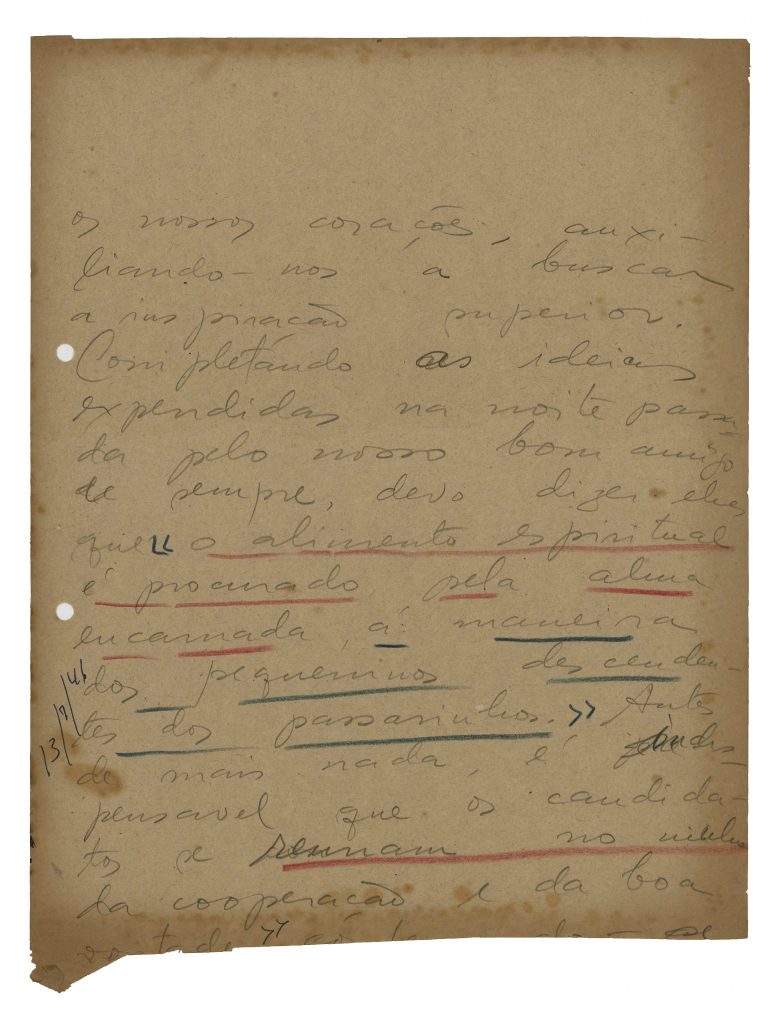 os nossos corações, auxi-
liando-nos á buscar
a inspiração superior.
Completando as ideias
expendidas na noite passa-
da pelo nosso bom amigo
de sempre, devo dizer
que « o alimento espiritual
é procurado pela alma
encarnada, á maneira
dos pequeninos descenden-
tes dos passarinhos. » Antes
de mais nada, é indis-
pensavel que os candida-
tos se reunam no ninho
da cooperação e da boa
vontade »
13/9/46